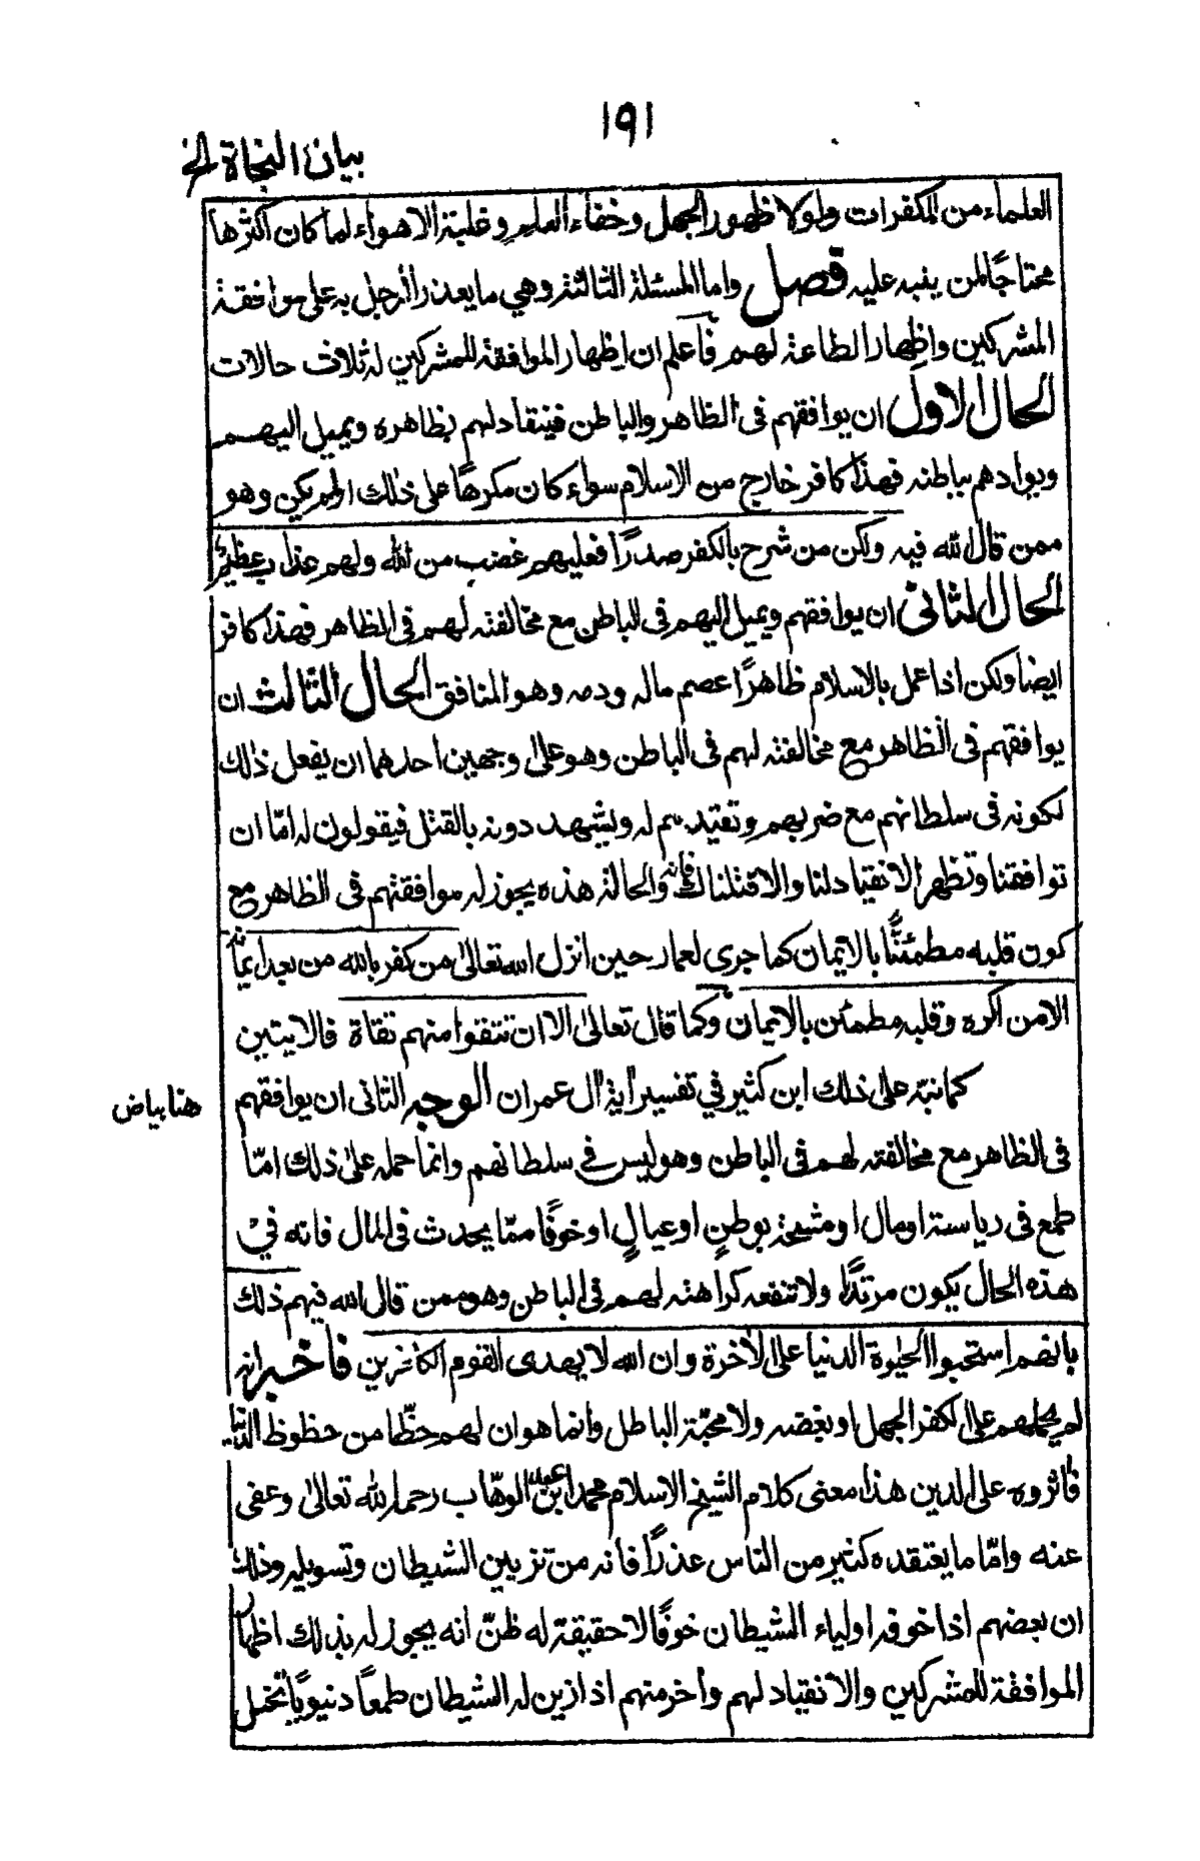 ١٩١
بيان النجاة الخ
العلماء من المكفرات ولولا ظهور الجهل وخفاء العلم وغلبة الاهواء لما كان اكثرها
محتاجًا لمن ينبه عليه فصل واما المسئلة الثالثة وهي ما يعذر الرجل به على موافقة
المشركين واظهار الطاعة لهم فاعلم ان اظهار الموافقة للمشركين له ثلاث حالات
الحال الاول ان يوافقهم فى الظاهر والباطن فينقاد لهم بظاهره ويميل اليهم
ويوادهم بباطنه فهذا كافر خارج من الاسلام سواء كان مكرهًا على ذلك اولم يكن وهو
ممن قال الله فيه ولكن من شرح بالكفر صدرًا فعليهم غضب من الله ولهم عذاب عظيم
الحال الثانى ان يوافقهم ويميل اليهم فى الباطن مع مخالفته لهم فى الظاهر فهذا كافر
ايضا ولكن اذا عمل بالاسلام ظاهرًا عصم ماله ودمه وهو المنافق الحال الثالث ان
يوافقهم فى الظاهر مع مخالفته لهم فى الباطن وهو على وجهين احدهما ان يفعل ذلك
لكونه فى سلطانهم مع ضربهم وتقييدهم له ويتهدد دونه بالقتل فيقولون له امّا ان
توافقنا وتظهر الانقياد لنا والا قتلناك فانه والحالة هذه يجوز له موافقتهم فى الظاهر مع
كون قلبه مطمئنًّا بالايمان كما جرى لعمار حين انزل الله تعالى من كفر بالله من بعد ايمانه
الا من اكره وقلبه مطمئن بالايمان وكما قال تعالى الا ان تتقوا منهم تقاة فالايتين
كما نبّه على ذلك ابن كثير في تفسير آية آل عمران الوجه الثانى ان يوافقهم
هنا بياض
فى الظاهر مع مخالفته لهم فى الباطن وهو ليس في سلطانهم وانما حمله على ذلك امّا
طمع فى رياسة او مال او مشحة بوطنٍ او عيالٍ او خوفًا ممّا يحدث فى المال فانه فيْ
هذه الحال يكون مرتدًّا ولا تنفعه كراهته لهم فى الباطن وهو ممن قال الله فيهم ذلك
بانهم استحبوا الحيوة الدنيا على الآخرة وان الله لا يهدى القوم الكافرين فاخبر انه
لم يحملهم على الكفر الجهل او بغضه ولا محبّة الباطل وانما هو ان لهم حظًّا من حظوظ الدنيا
فآثروه على الدين هذا معنى كلام الشيخ الاسلام محمد ابن عبد الوهّاب رحمه الله تعالى وعفى
عنه وامّا ما يعتقده كثير من الناس عذرًا فانه من تزيين الشيطان وتسويله وذلك
ان بعضهم اذا خوفه اولياء الشيطان خوفًا لا حقيقة له ظنّ انه يجوز له بذلك اظهار
الموافقة للمشركين والانقياد لهم وآخر منهم اذا زين له الشيطان طمعًا دنيويًا تخيل